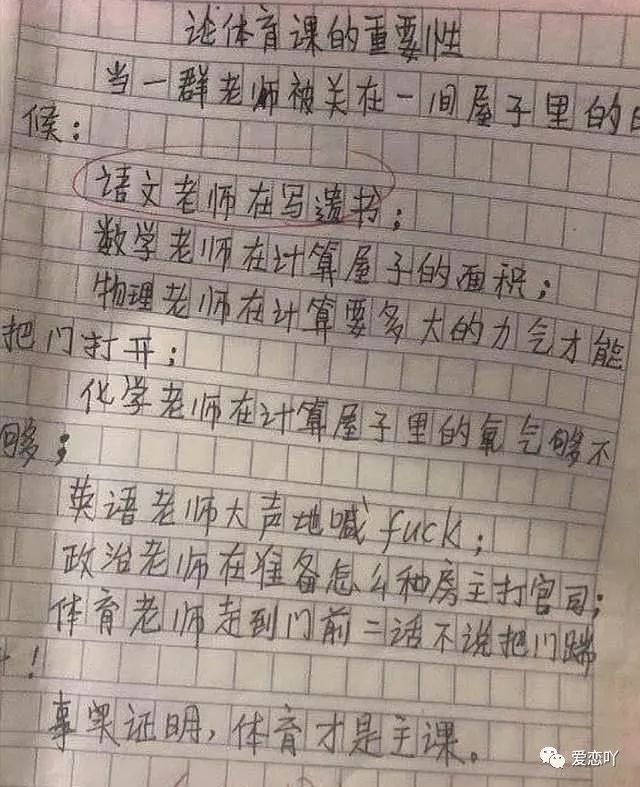 论体育课的重要性
当一群老师被关在一间屋子里的
候：
语文老师在写遗书；
数学老师在计算屋子的面积；
物理老师在计算要多大的力气才能
把门打开；
化学老师在计算屋子里的氧气够不
够；
英语老师大声地喊fuck；
政治老师在准备怎么和房主打官司；
体育老师走到门前二话不说把门踹
！
事实证明，体育才是主课。
爱恋吖